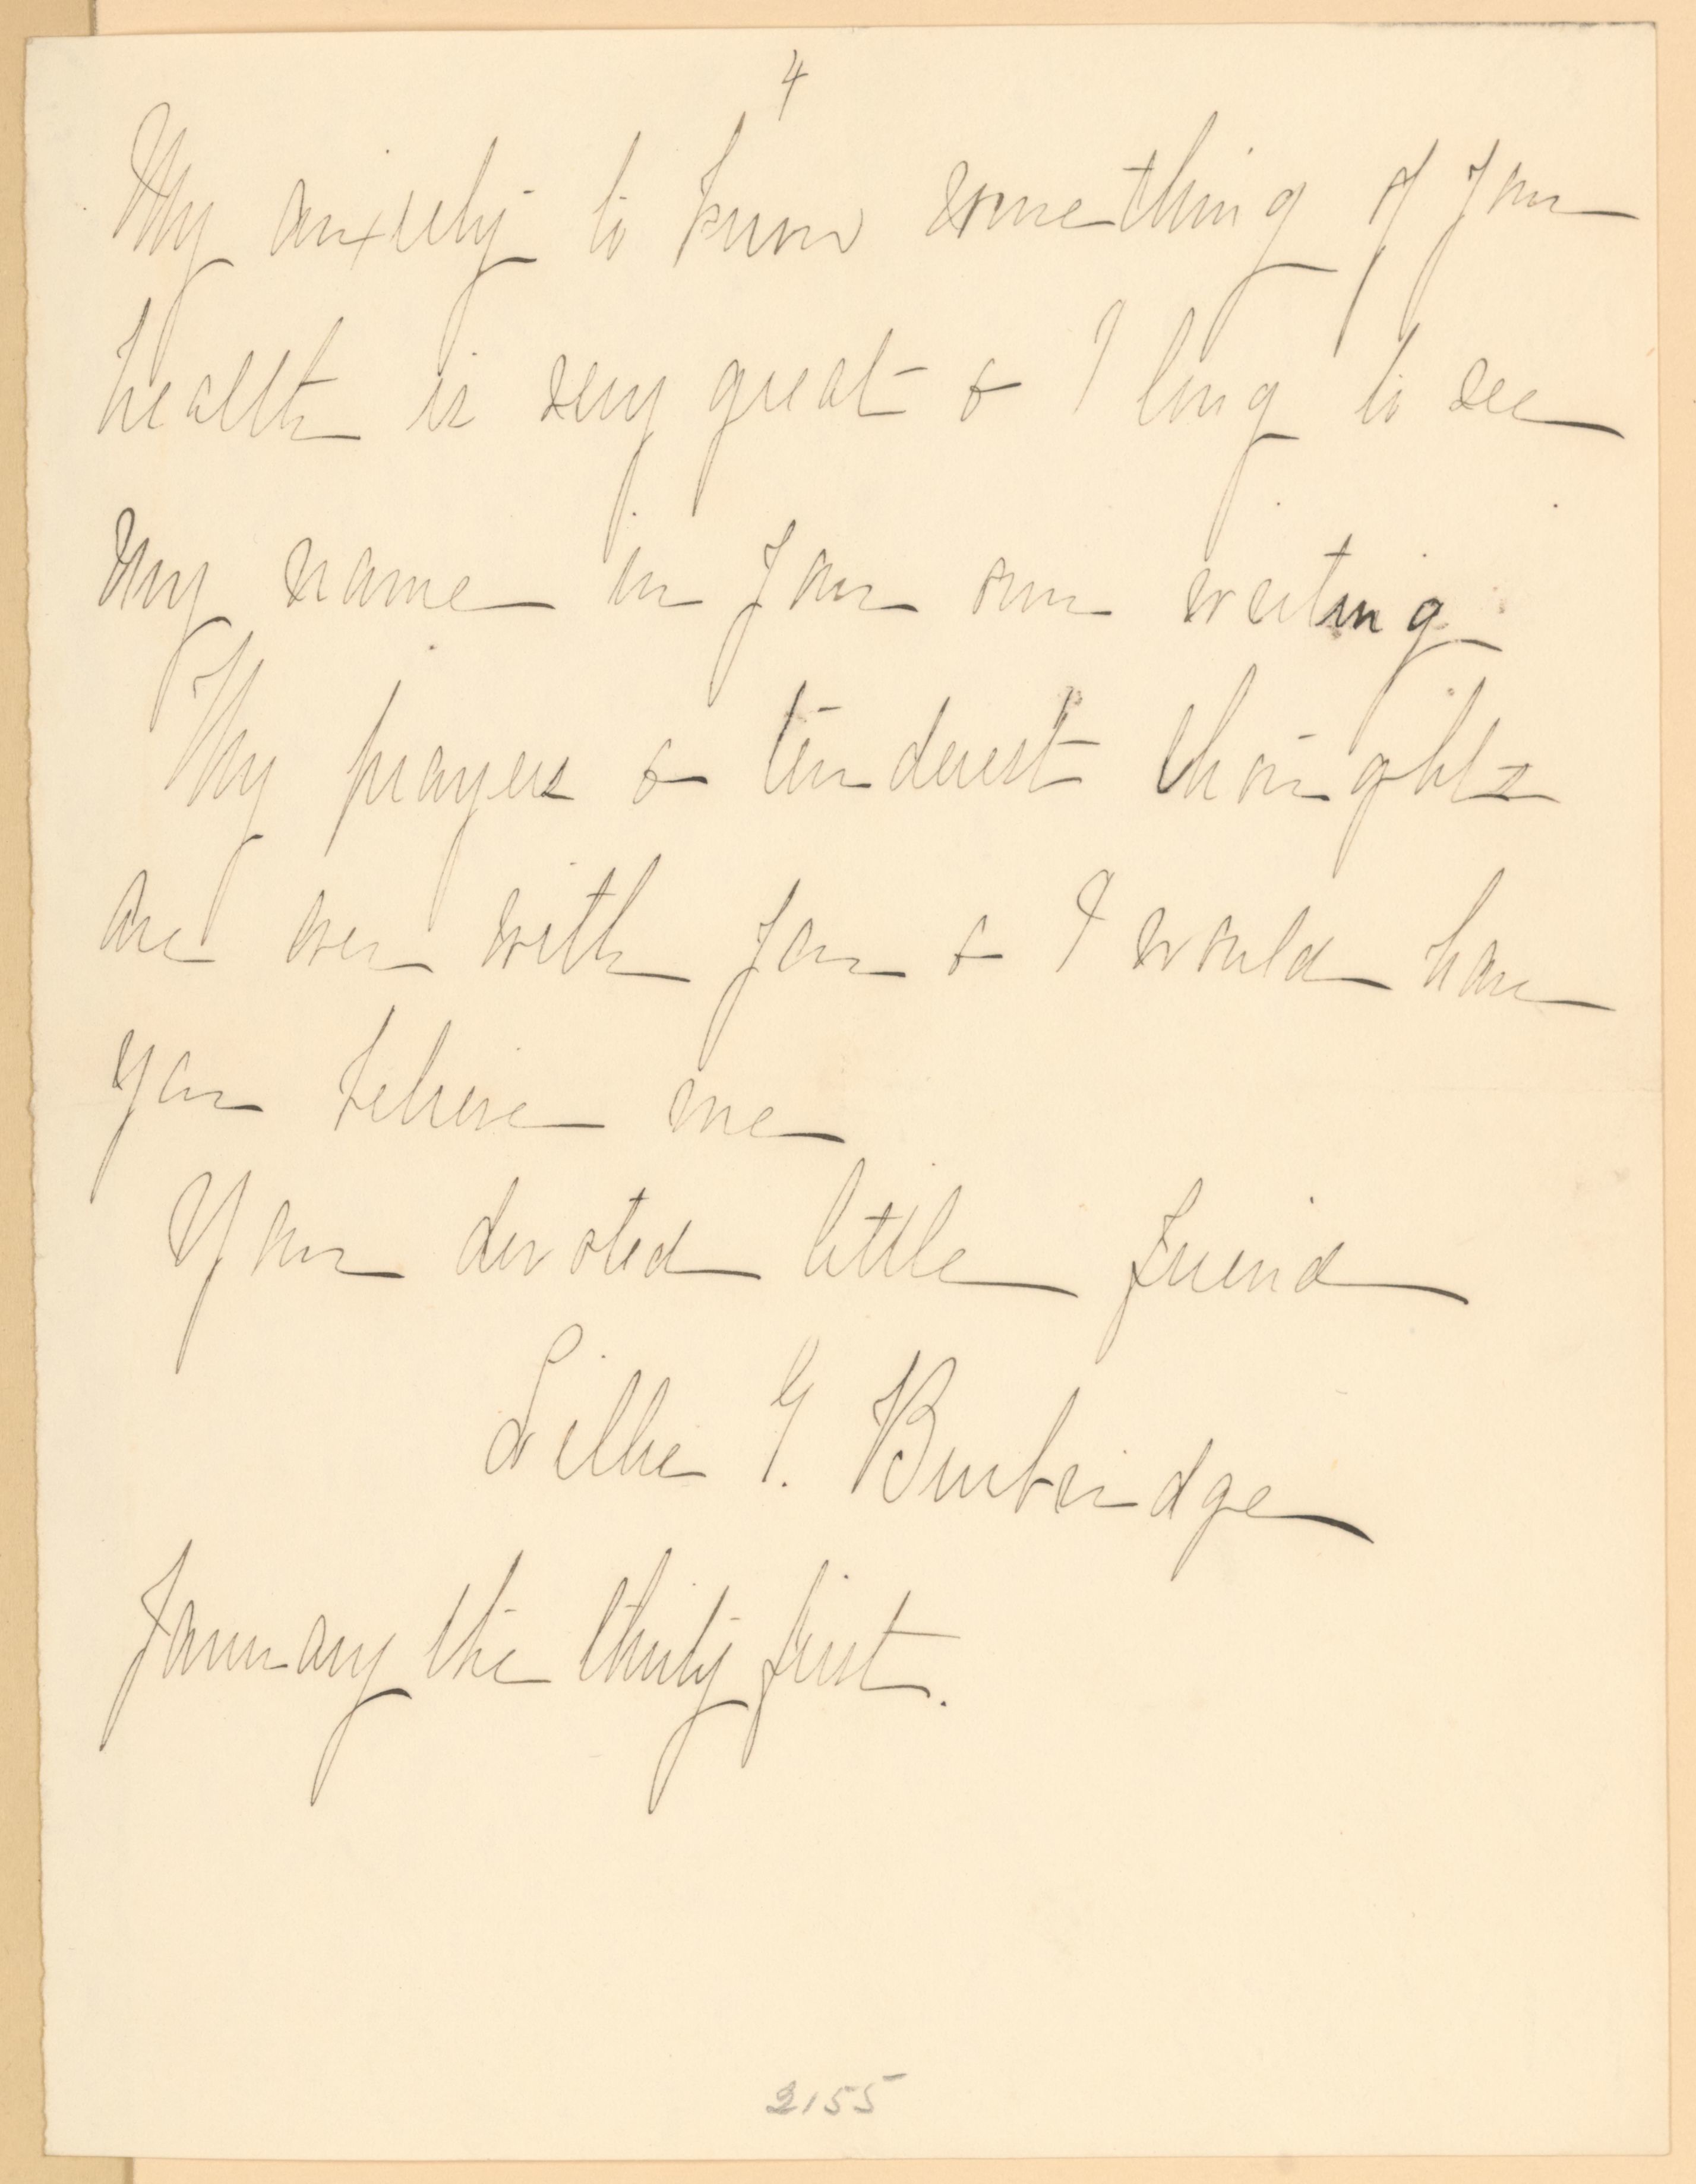 4
My anxiety to know something of your
health is very great & I long to see
my name in your own writing
My prayers & tenderest thoughts
are ever with you & I would have
you believe me
Your devoted little friend
Lillie G. Burbridge
January the thirty first.
2155